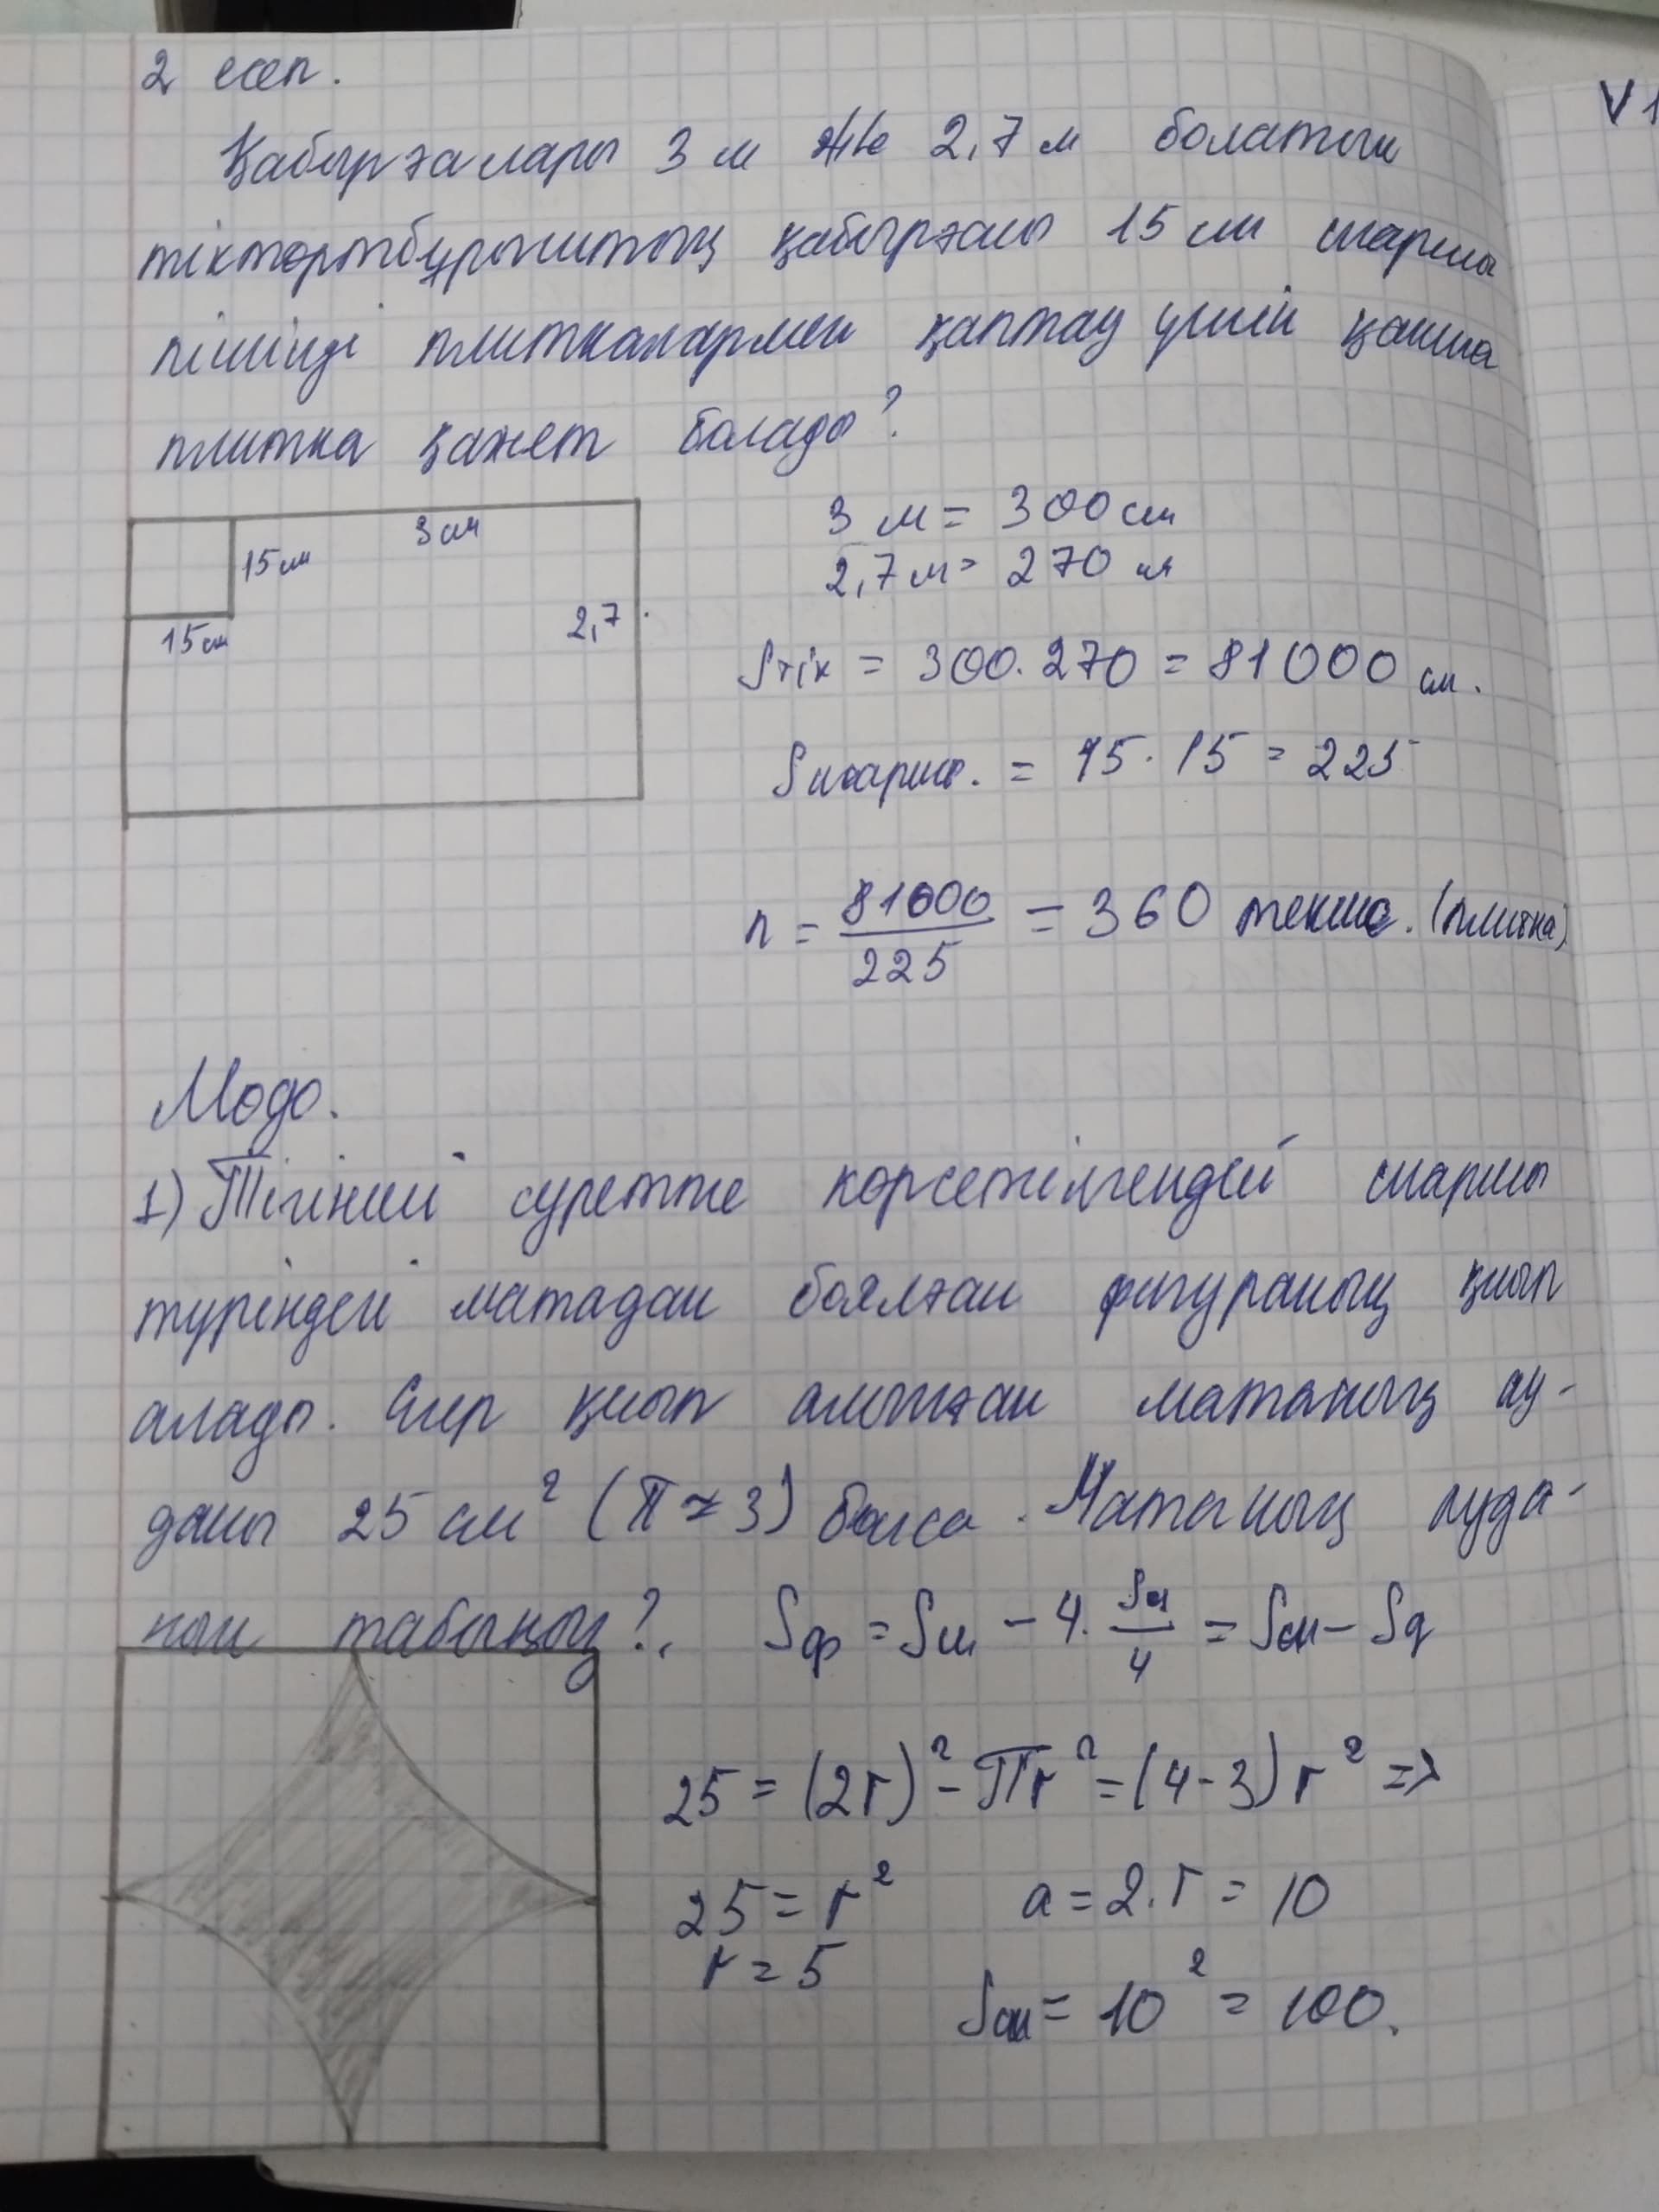 2 есеп.
V1
Қабырғалары 3 м және 2,7 м болатын
тіктөртбұрыштың қабырғасы 15 см шаршы
пішінді плиткалармен қаптау үшін қанша
плитка қажет болады?
3 см
15 см
15 см
2,7
3 м = 300 см
2,7 м = 270 см
Sтік = 300 · 270 = 81000 см.
Sшаршы. = 15 · 15 = 225
n = 81000/225 = 360 текше. (плитка)
Модо.
1) Тігінші суретте көрсетілгендей шаршы
түріндей матадан боялған фигураның қиып
алады. Егер қиып алынған матаның ау-
даны 25 см² (π ≈ 3) болса. Матаның ауда-
нын табыңыз?
Sф = Sш − 4 · Sд/4 = Sш − Sд
25 = (2r)² − πr² = (4 − 3) r² =>
25 = r²
a = 2 · r = 10
r = 5
Sш = 10² = 100.